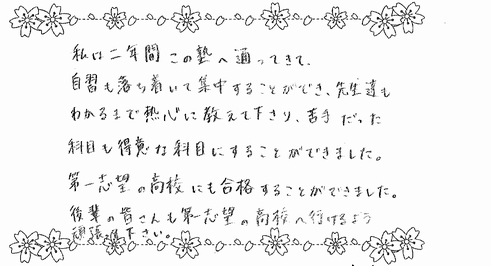 私は二年間この塾へ通ってきて、
自習も落ち着いて集中することができ、先生達も
わかるまで熱心に教えて下さり、苦手だった
科目も得意な科目にすることができました。
第一志望の高校にも合格することができました。
後輩の皆さんも第一志望の高校へ行けるよう
頑張って下さい。